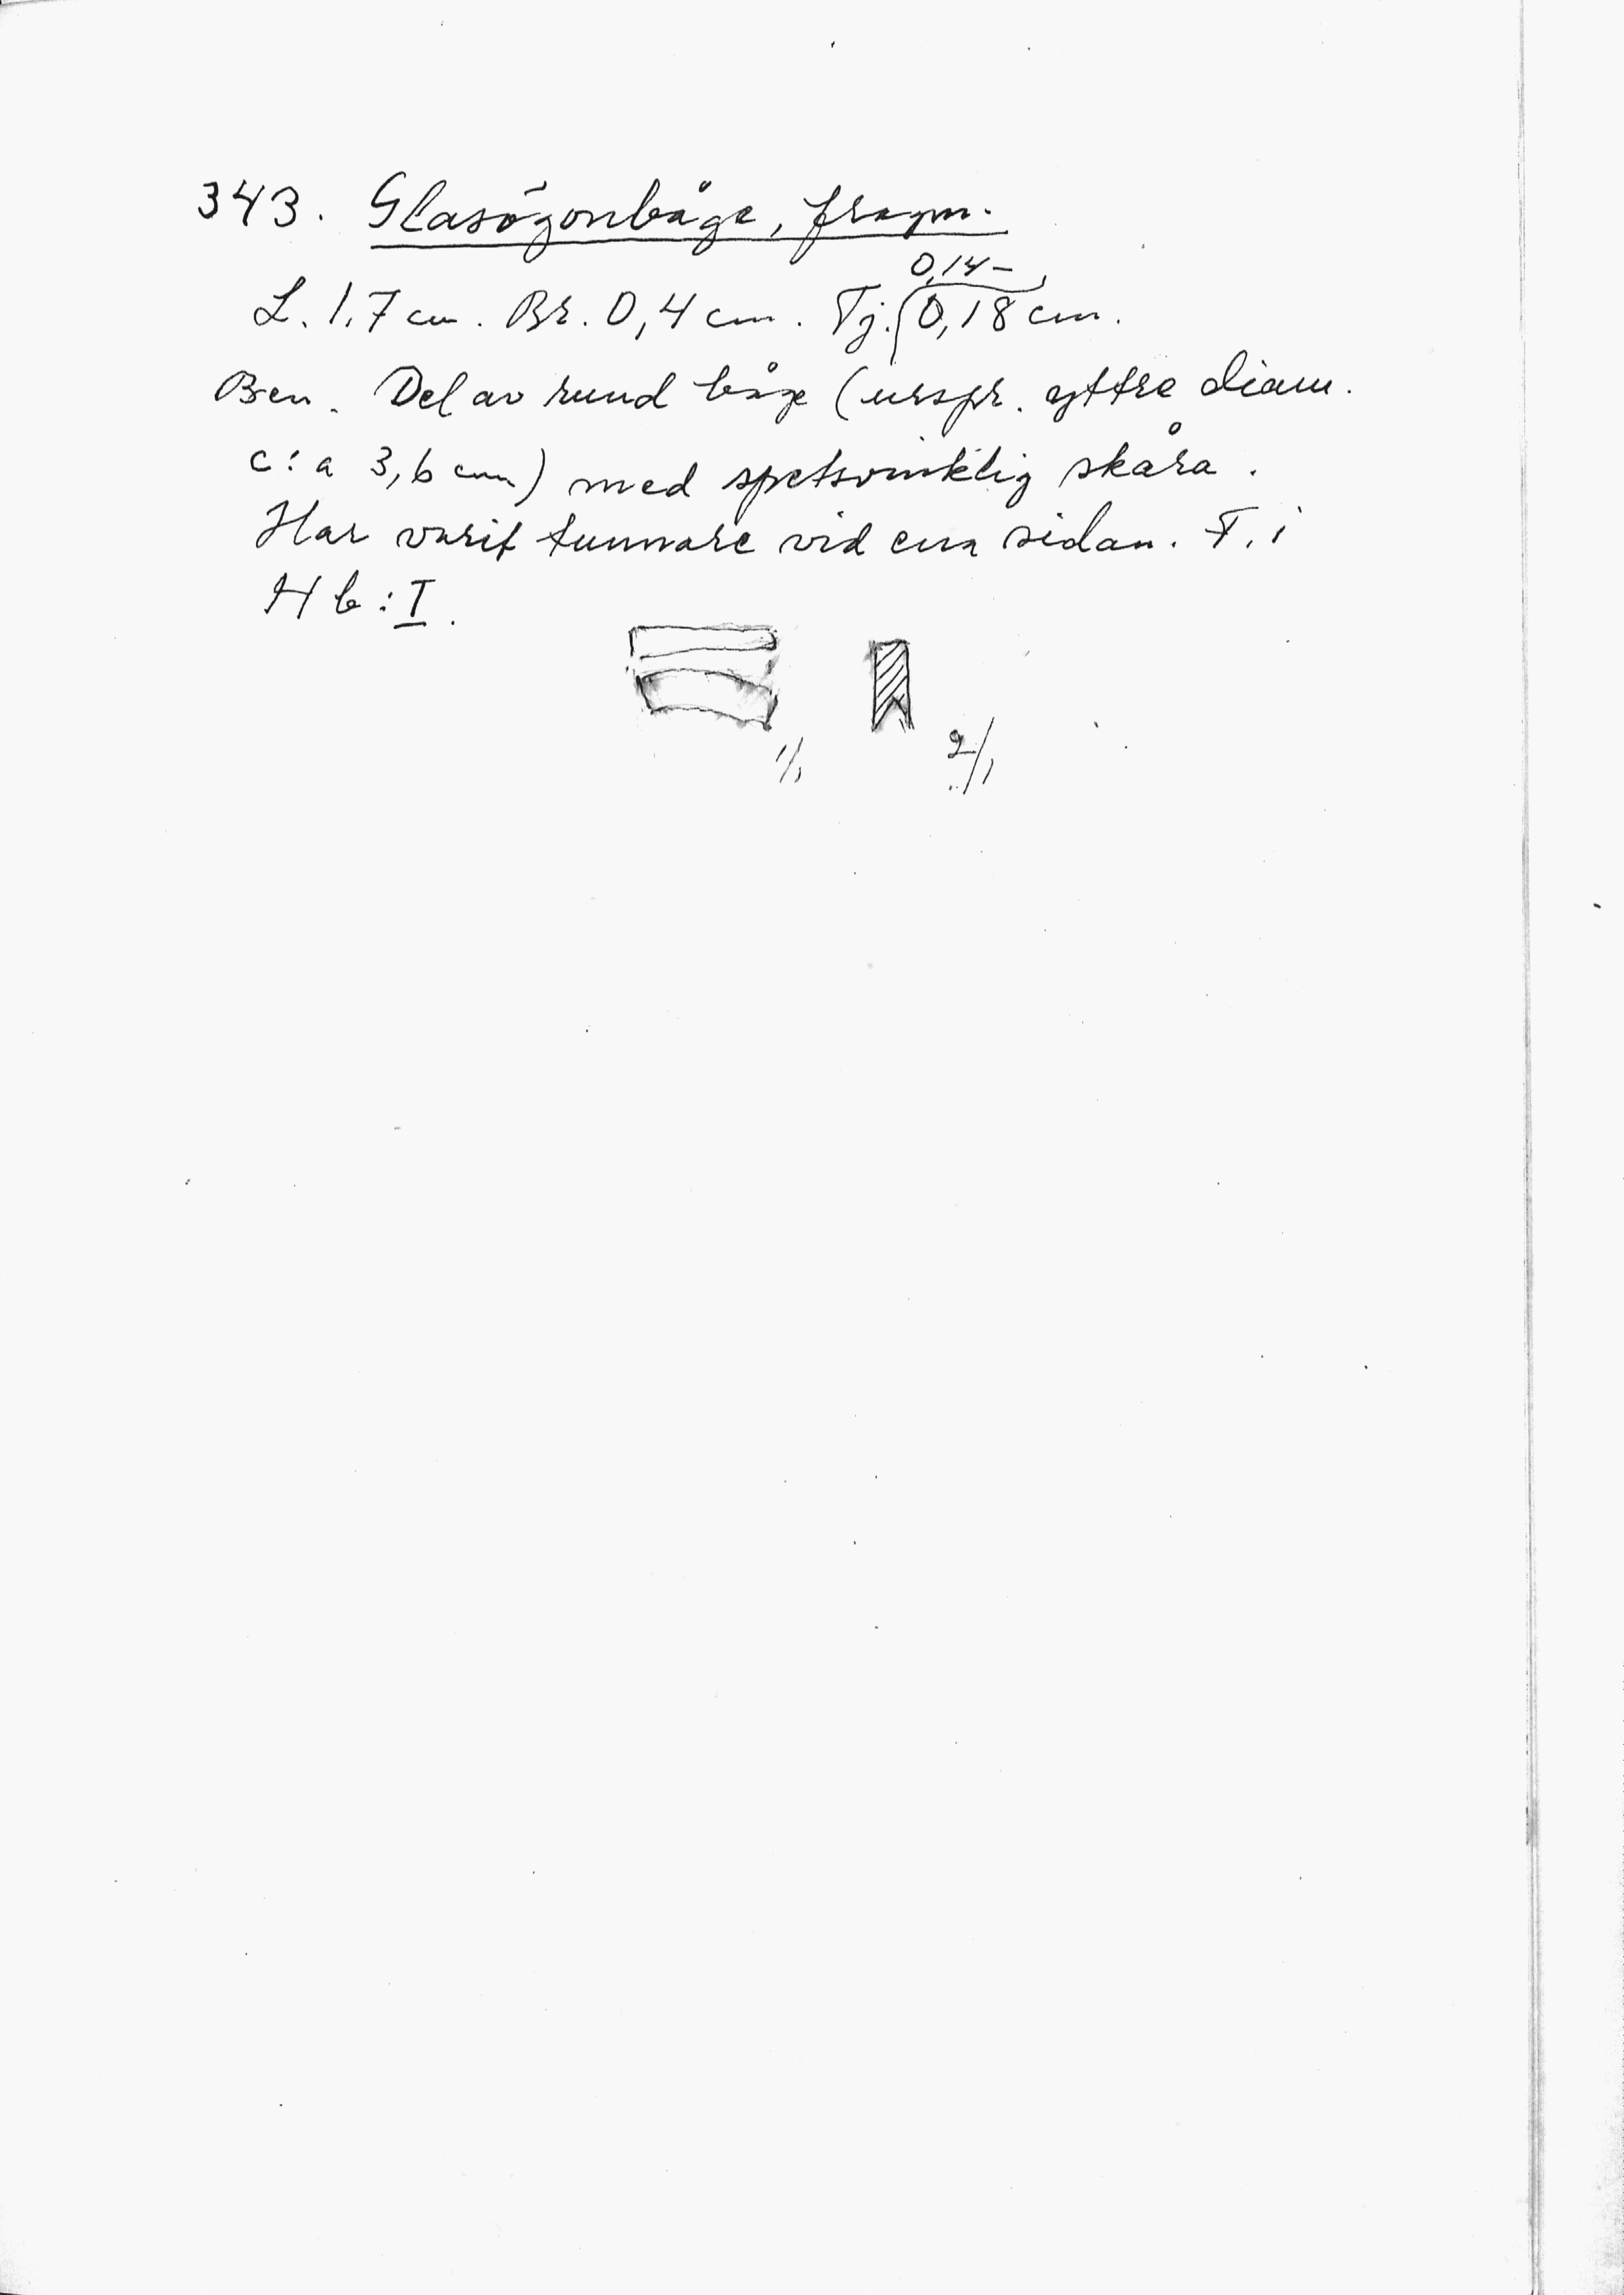 343. Glasögonbåge, fragm.
L. 1,7 cm. Br. 0,4 cm. Tj. 0,14-0,18 cm.
Ben. Del av rund båge (urspr. yttre diam.
c:a 3,6 cm) med spetsvinklig skåra.
Har varit tunnare vid ena sidan. F. i
H b : I.
1/1 2/1